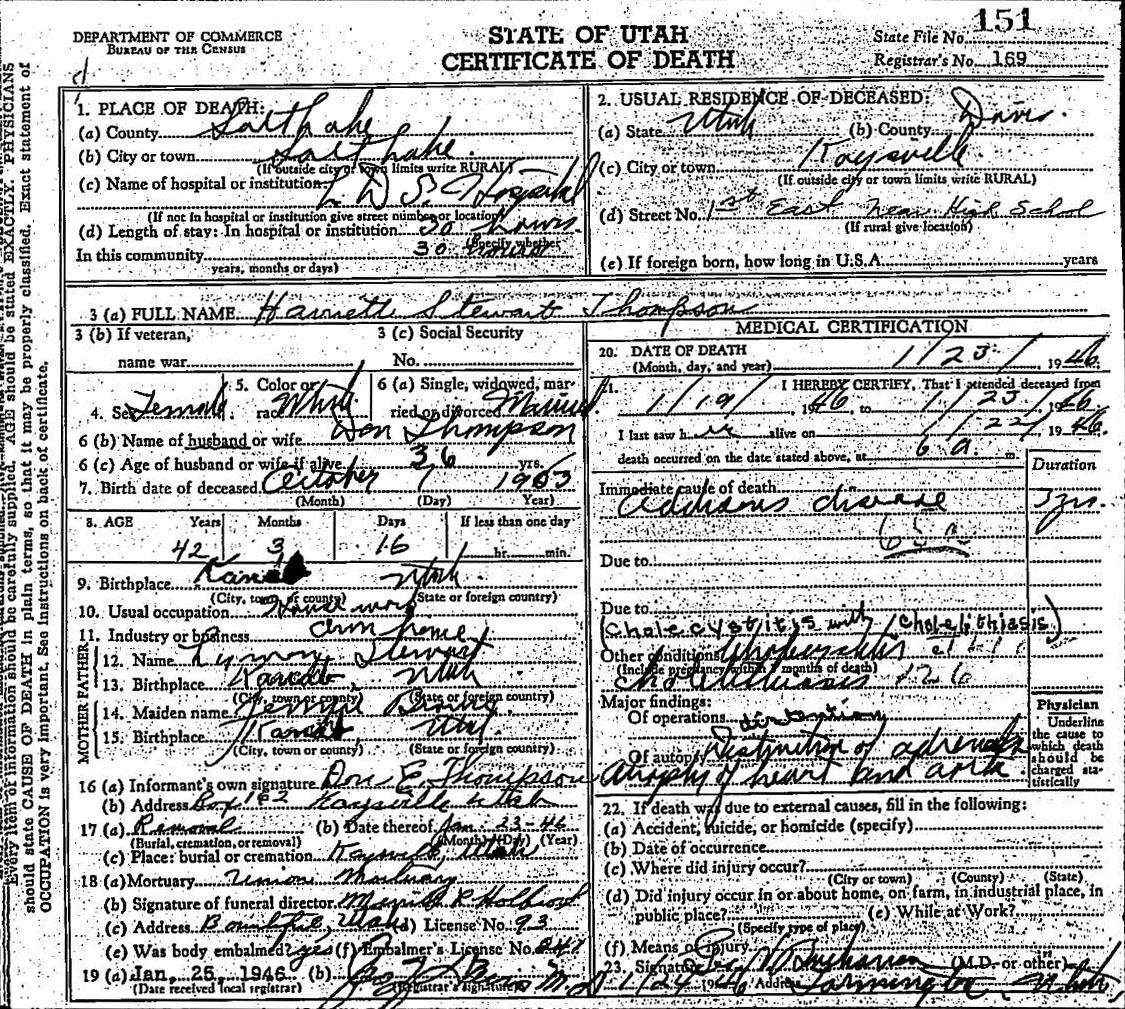 151
DEPARTMENT OF COMMERCE
BUREAU OF THE CENSUS
STATE OF UTAH
CERTIFICATE OF DEATH
State File No.
Registrar's No. 169
Every item of information should be carefully supplied. AGE should be stated EXACTLY. PHYSICIANS
should state CAUSE OF DEATH in plain terms, so that it may be properly classified. Exact statement of
OCCUPATION is very important. See instructions on back of certificate.
1. PLACE OF DEATH:
(a) County Salt Lake
(b) City or town Salt Lake
(If outside city or town limits write RURAL)
(c) Name of hospital or institution L D S Hospital
(If not in hospital or institution give street number or location)
(d) Length of stay: In hospital or institution 30 hours
(Specify whether
In this community 30 hours
years, months or days)
2. USUAL RESIDENCE OF DECEASED:
(a) State Utah (b) County Davis
(c) City or town Kaysville
(If outside city or town limits write RURAL)
(d) Street No. 1st East near High School
(If rural give location)
(e) If foreign born, how long in U.S.A. years
3 (a) FULL NAME Harriett Stewart Thompson
3 (b) If veteran,
name war
3 (c) Social Security
No.
4. Sex Female
5. Color or
race White
6 (a) Single, widowed, mar-
ried or divorced Married
6 (b) Name of husband or wife Don Thompson
6 (c) Age of husband or wife if alive 36 yrs.
7. Birth date of deceased October 7 1903
(Month) (Day) Year)
8. AGE Years Months Days If less than one day
42 3 16 hr. min.
9. Birthplace Kanab Utah
(City, town or county) (State or foreign country)
10. Usual occupation House work
11. Industry or business own home
FATHER
12. Name Lymon Stewart
13. Birthplace Kanab, Utah
(City, town or county) (State or foreign country)
MOTHER
14. Maiden name
15. Birthplace Kanab Utah
(City, town or county) (State or foreign country)
16 (a) Informant's own signature Don E. Thompson
(b) Address Box 162 Kaysville Utah
17 (a) Removal (b) Date thereof Jan. 23-46
(Burial, cremation, or removal) (Month) (Day) (Year)
(c) Place: burial or cremation Kaysville, Utah
18 (a) Mortuary Union Mortuary
(b) Signature of funeral director R Holbrook
(c) Address Bountiful, Utah (d) License No. 93
(e) Was body embalmed? yes (f) Embalmer's License No. 247
19 (a) Jan. 25, 1946 (b) M.D
(Date received local registrar) (Registrar's signature)
MEDICAL CERTIFICATION
20. DATE OF DEATH 1/23/ 1946
(Month, day, and year)
21. I HEREBY CERTIFY, That I attended deceased from
1/19/ 1946 to 1/23/ 1946
I last saw her alive on 1/22/ 1946
death occurred on the date stated above, at 6 a. m.
Duration
Immediate cause of death
Addisons disease 3 yrs.
Due to
Due to
(Cholecystitis with Cholelithiasis)
Other conditions
(Include pregnancy within 3 months of death)
Cholelithiasis 126
Major findings:
Of operations
Of autopsy Distruction of adrenals
Atrophy of heart and aorta
Physician
Underline
the cause to
which death
should be
charged sta-
tistically
22. If death was due to external causes, fill in the following:
(a) Accident, suicide, or homicide (specify)
(b) Date of occurrence
(c) Where did injury occur?
(City or town) (County) (State)
(d) Did injury occur in or about home, on farm, in industrial place, in
public place? (e) While at Work?
(Specify type of place)
(f) Means of injury
23. Signature (M.D. or other)
1/24 1946 Address Farmington, Utah